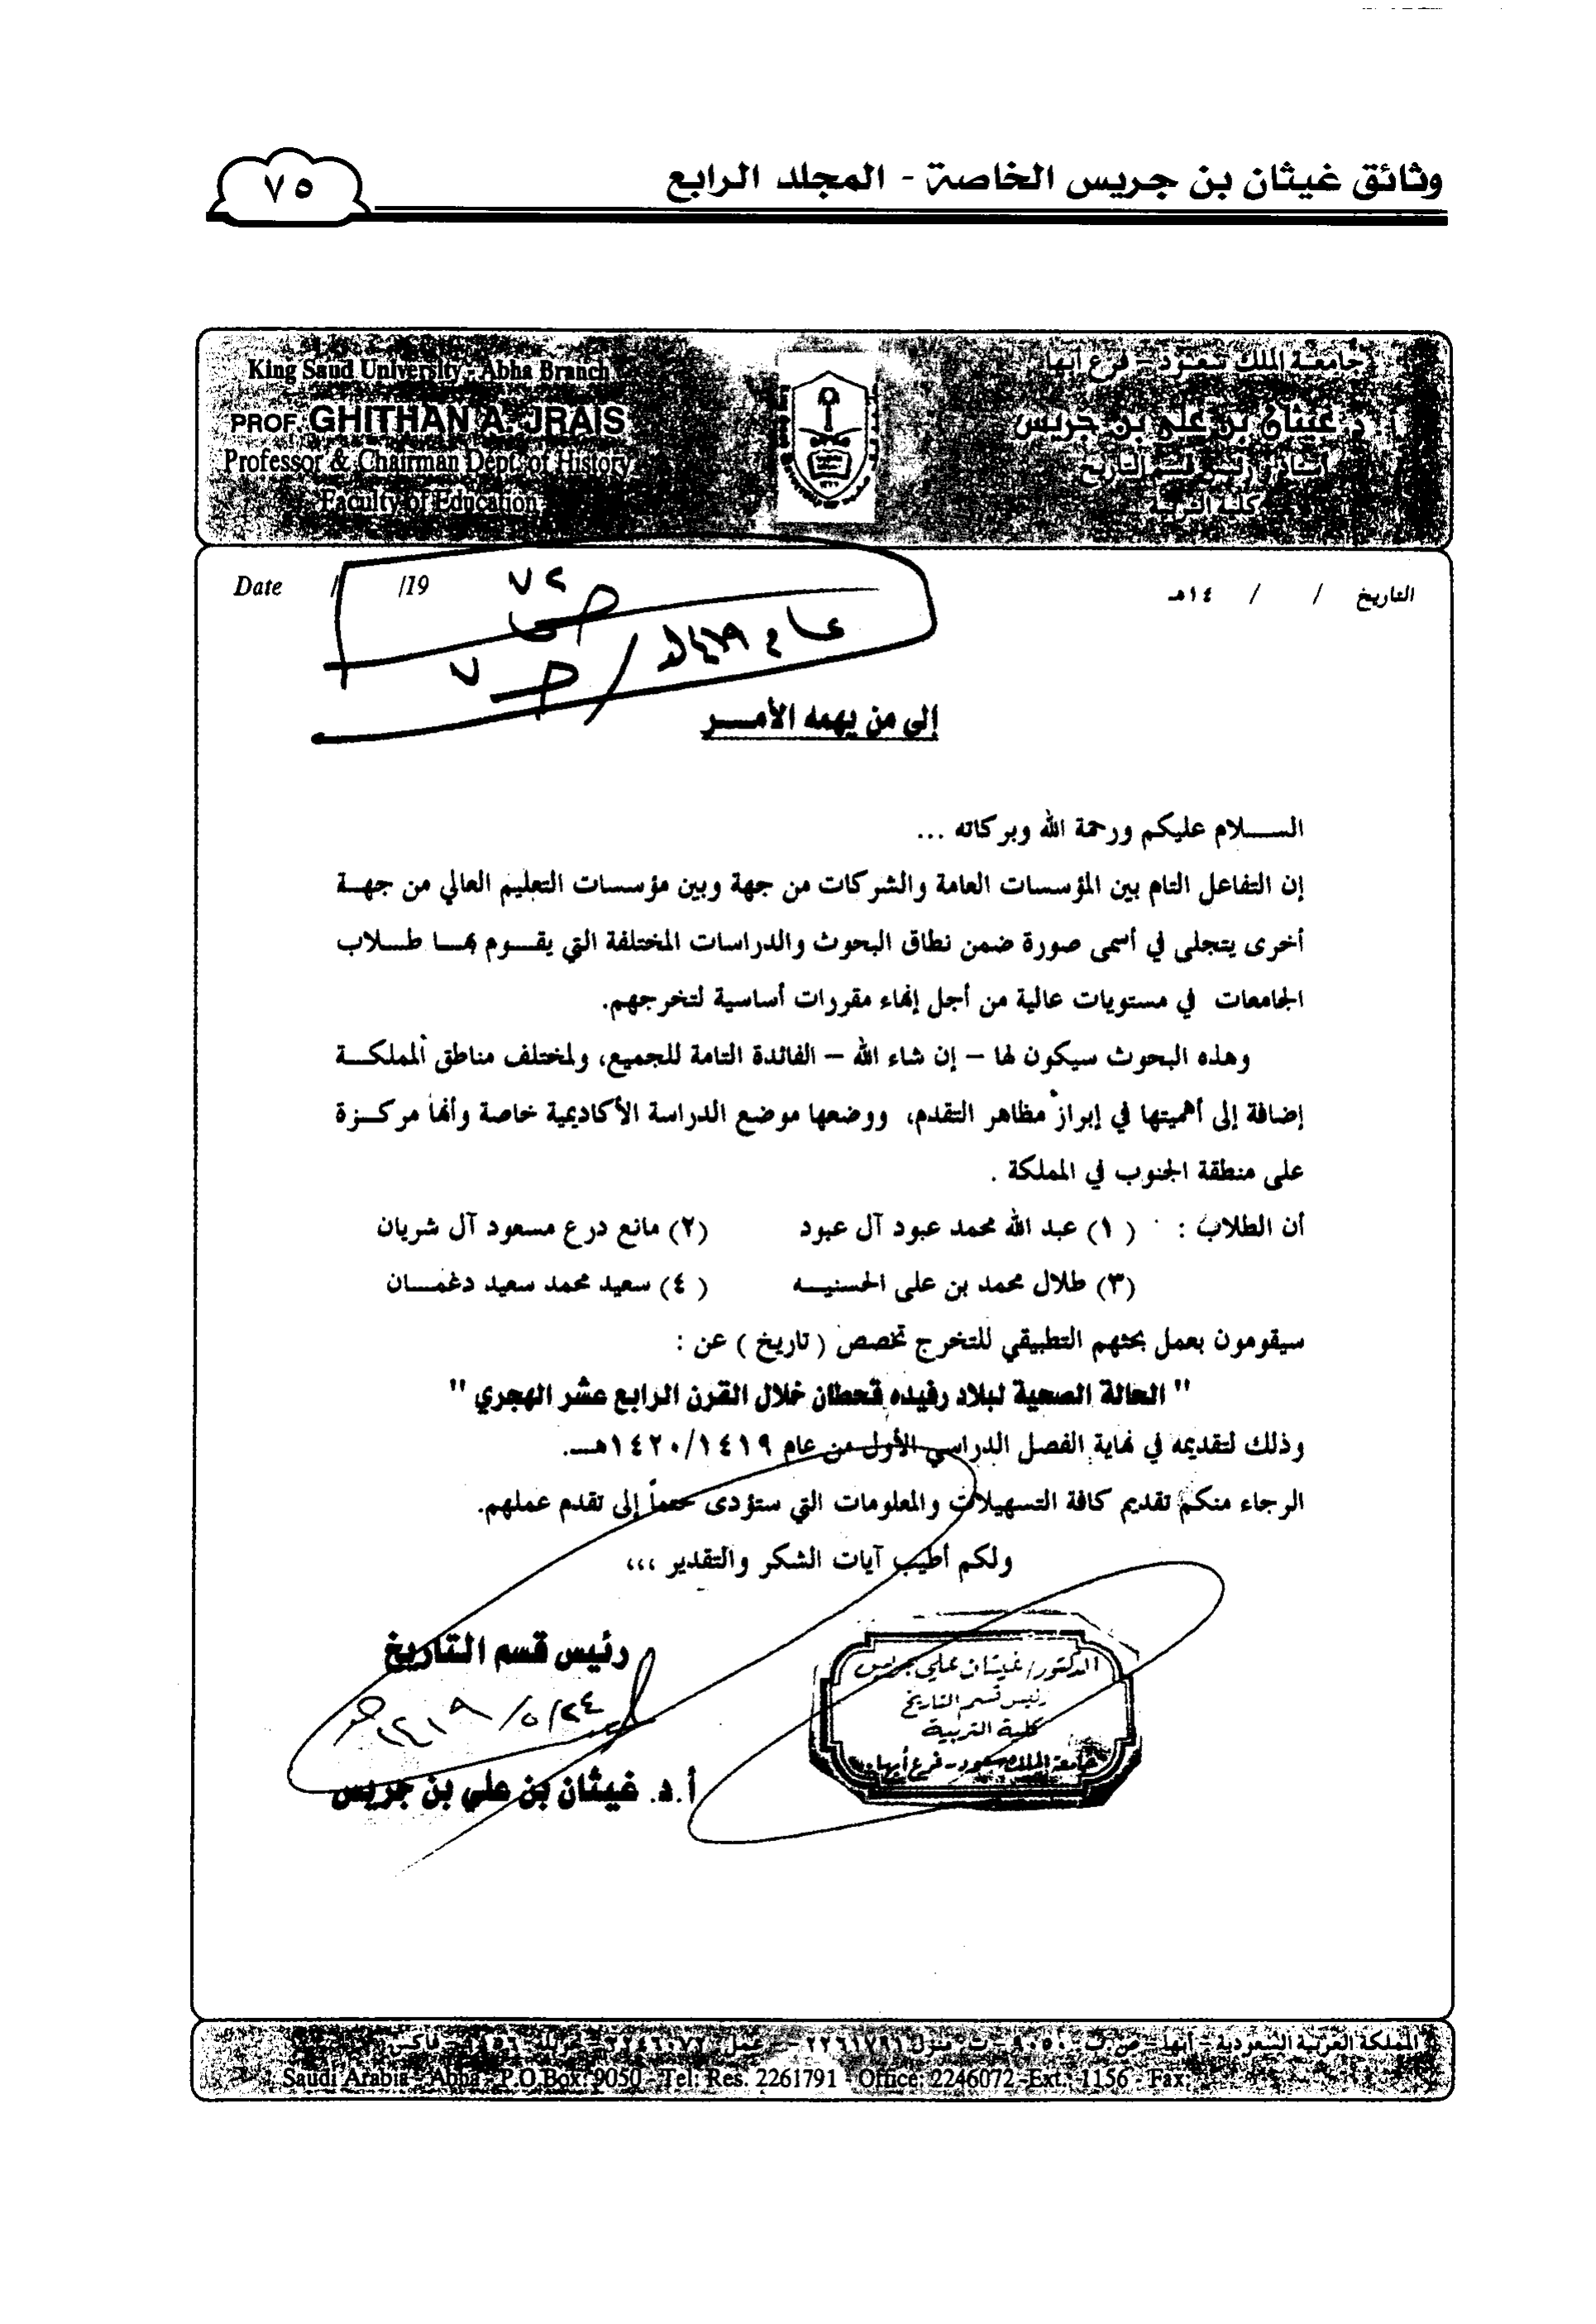 وثائق غيثان بن جريس الخاصة - المجلد الرابع
٧٥
King Saud University - Abha Branch
PROF. GHITHAN A. JRAIS
Professor & Chairman Dept. of History
Faculty of Education
جامعة الملك سعود - فرع أبها
أ. د غيثان بن علي بن جريس
أستاذ ورئيس قسم التاريخ
كلية التربية
Date / /19
التاريخ / / ١٤هـ
إلى من يهمه الأمـــر
الســـلام عليكم ورحمة الله وبركاته ...
إن التفاعل التام بين المؤسسات العامة والشركات من جهة وبين مؤسسات التعليم العالي من جهـة
أخرى يتجلى في أسمى صورة ضمن نطاق البحوث والدراسات المختلفة التي يقـــوم بهـــا طـــلاب
الجامعات في مستويات عالية من أجل إنهاء مقررات أساسية لتخرجهم.
وهذه البحوث سيكون لها – إن شاء الله – الفائدة التامة للجميع، ولمختلف مناطق المملكـــة
إضافة إلى أهميتها في إبراز مظاهر التقدم، ووضعها موضع الدراسة الأكاديمية خاصة وأنها مركـــزة
على منطقة الجنوب في المملكة .
أن الطلاب : (١) عبد الله محمد عبود آل عبود (٢) مانع درع مسعود آل شريان
(٣) طلال محمد بن على الحسنيـــه (٤) سعيد محمد سعيد دغمـــان
سيقومون بعمل بحثهم التطبيقي للتخرج تخصص ( تاريخ ) عن :
" الحالة الصحية لبلاد رفيده قحطان خلال القرن الرابع عشر الهجري "
وذلك لتقديمه في نهاية الفصل الدراسي الأول من عام ١٤٢٠/١٤١٩هـــ.
الرجاء منكم تقديم كافة التسهيلات والمعلومات التي ستؤدى حتماً إلى تقدم عملهم.
ولكم أطيب آيات الشكر والتقدير ،،،
رئيس قسم التاريخ
١٤١٩/٥/٢٤هـ
أ.د. غيثان بن علي بن جريس
الدكتور/ غيثان علي جريس
رئيس قسم التاريخ
كلية التربية
جامعة الملك سعود - فرع أبها
المملكة العربية السعودية - أبها - ص.ب ٩٠٥٠ - ت: منزل ٢٢٦١٧٩١ - عمل ٢٢٤٦٠٧٢ - تحويلة ١١٥٦ - فاكس
Saudi Arabia - Abha - P.O.Box: 9050 - Tel: Res. 2261791 - Office: 2246072 - Ext.: 1156 - Fax: